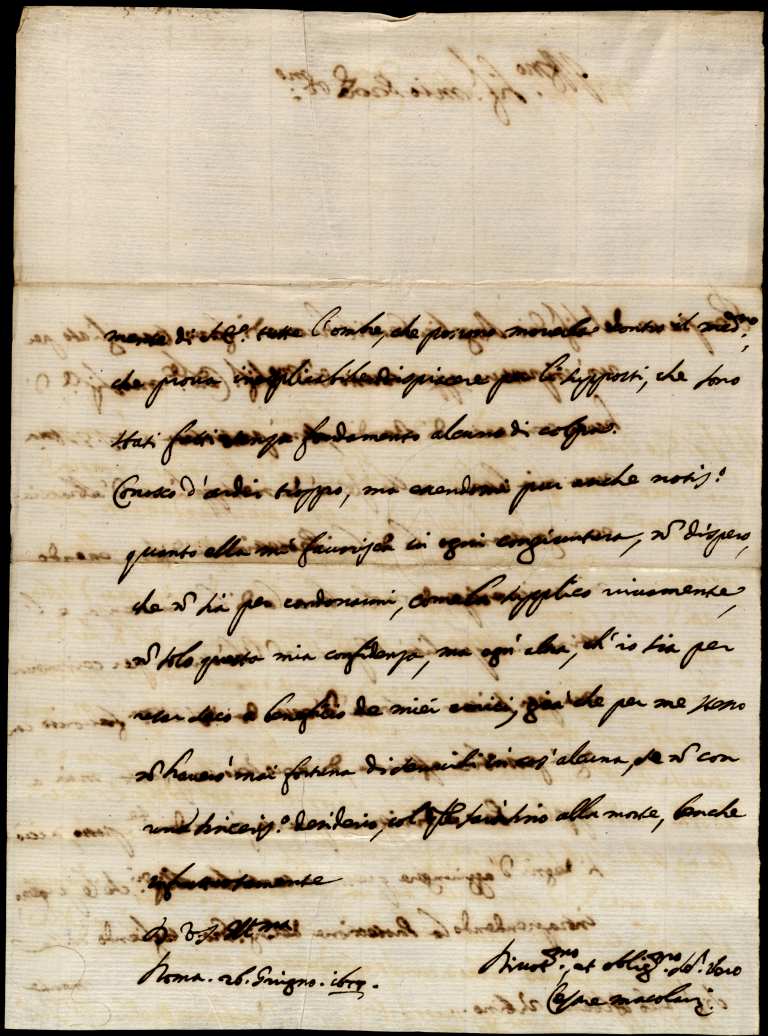 mente di tutte l'ombre, che possono moverla contro il med.mo,
che prova inesplicabile dispiacere per li supposti, che sono
stati fatti senza fondamento alcuno di colpa.
Conosco d'ardir troppo, ma essendomi pur anche notiss.o
quanto ella mi favorisca in ogni congiuntura, nõ dispero,
che nõ sia per condonarmi, come la supplico vivamente,
nõ solo questa mia confidenza, ma ogn' altra, ch' io sia per
usar seco a beneficio de miei amici, già che per me stesso
nõ haverò mai fortuna di servirli in cos' alcuna, se nõ con
una sinceriss.o desiderio, col sarò fino alla morte, benche
infruttuosamente
Di V. S. Ill.ma
Roma. 26. Giugno.
et oblig.mo ser. vero
Cesare Macolani